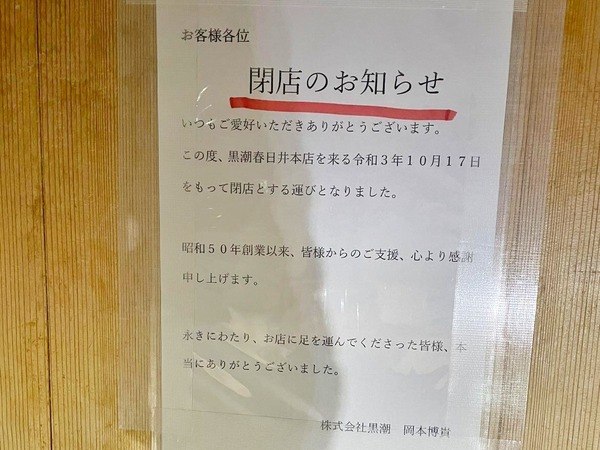 お客様各位
閉店のお知らせ
いつもご愛好いただきありがとうございます。
この度、黒潮春日井本店を来る令和３年１０月１７日
をもって閉店とする運びとなりました。
昭和５０年創業以来、皆様からのご支援、心より感謝
申し上げます。
永きにわたり、お店に足を運んでくださった皆様、本
当にありがとうございました。
株式会社黒潮　岡本博嵩